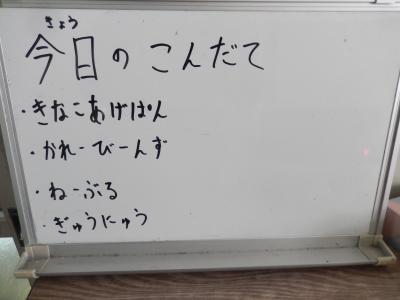 きょう
今日のこんだて
・きなこあげぱん
・かれーびーんず
・ねーぶる
・ぎゅうにゅう